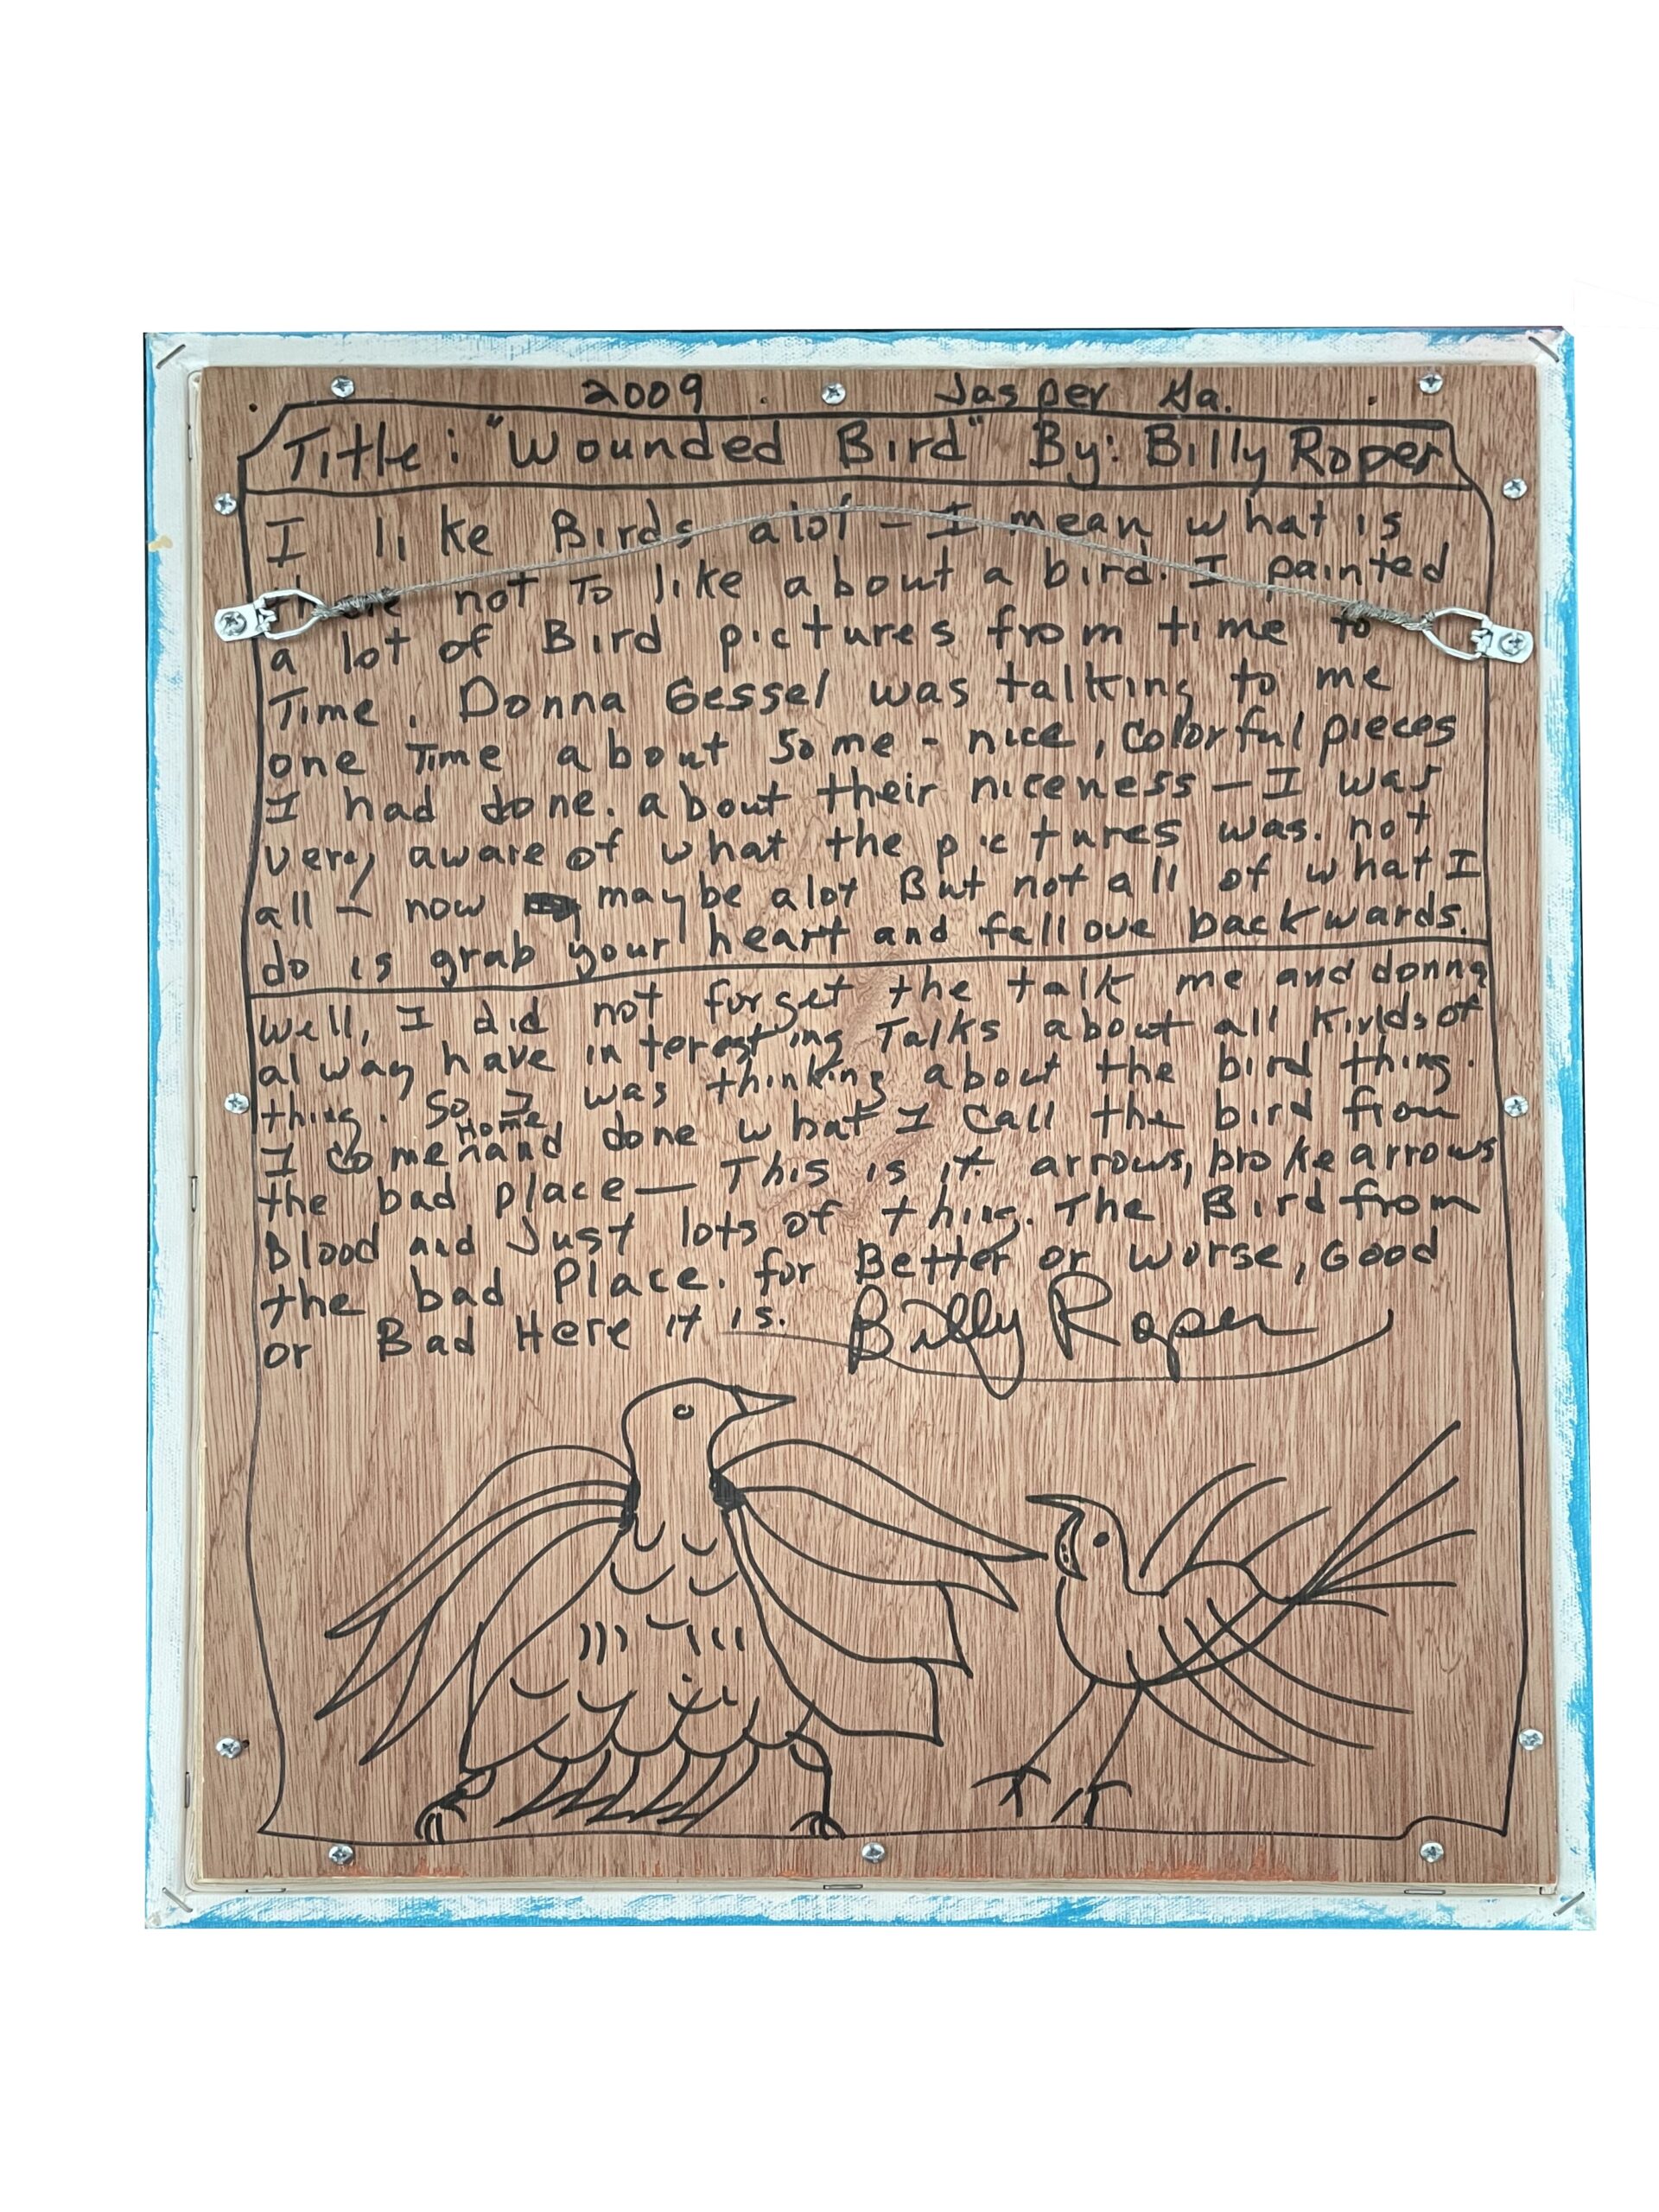 2009 Jasper Ga.
Title: "Wounded Bird" By: Billy Roper
I like Birds alot - I mean what is
there not To like about a bird. I painted
a lot of Bird pictures from time to
Time. Donna Gessel was talking to me
one Time about Some - nice, colorful pieces
I had done. about their niceness - I was
very aware of what the pictures was. not
all - now maybe alot But not all of what I
do is grab your heart and fall ove backwards.
Well, I did not forget the talk me and donna
alway have interesting Talks about all Kinds of
thing. So I was thinking about the bird thing.
I come Home and done what I call the bird from
the bad place - This is it arrows, broke arrows
Blood and Just lots of thing. The Bird from
the bad Place. for Better or worse, Good
or Bad Here it is. Billy Roper